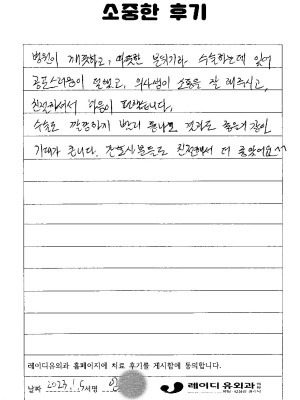 소중한 후기
병원이 깨끗하고, 따뜻한 분위기라 수술하는데 있어
공포스러움이 덜했고, 의사쌤이 소통을 잘 해주시고,
친절하셔서 마음이 편했습니다.
수술도 깔끔하게 빨리 끝나고 결과도 좋은거 같아
기대가 큽니다. 간호사분들도 친절해서 더 좋았어요~
레이디유외과 홈페이지에 치료 후기를 게시함에 동의합니다.
날짜 2023. 1. 5 서명
레이디유외과